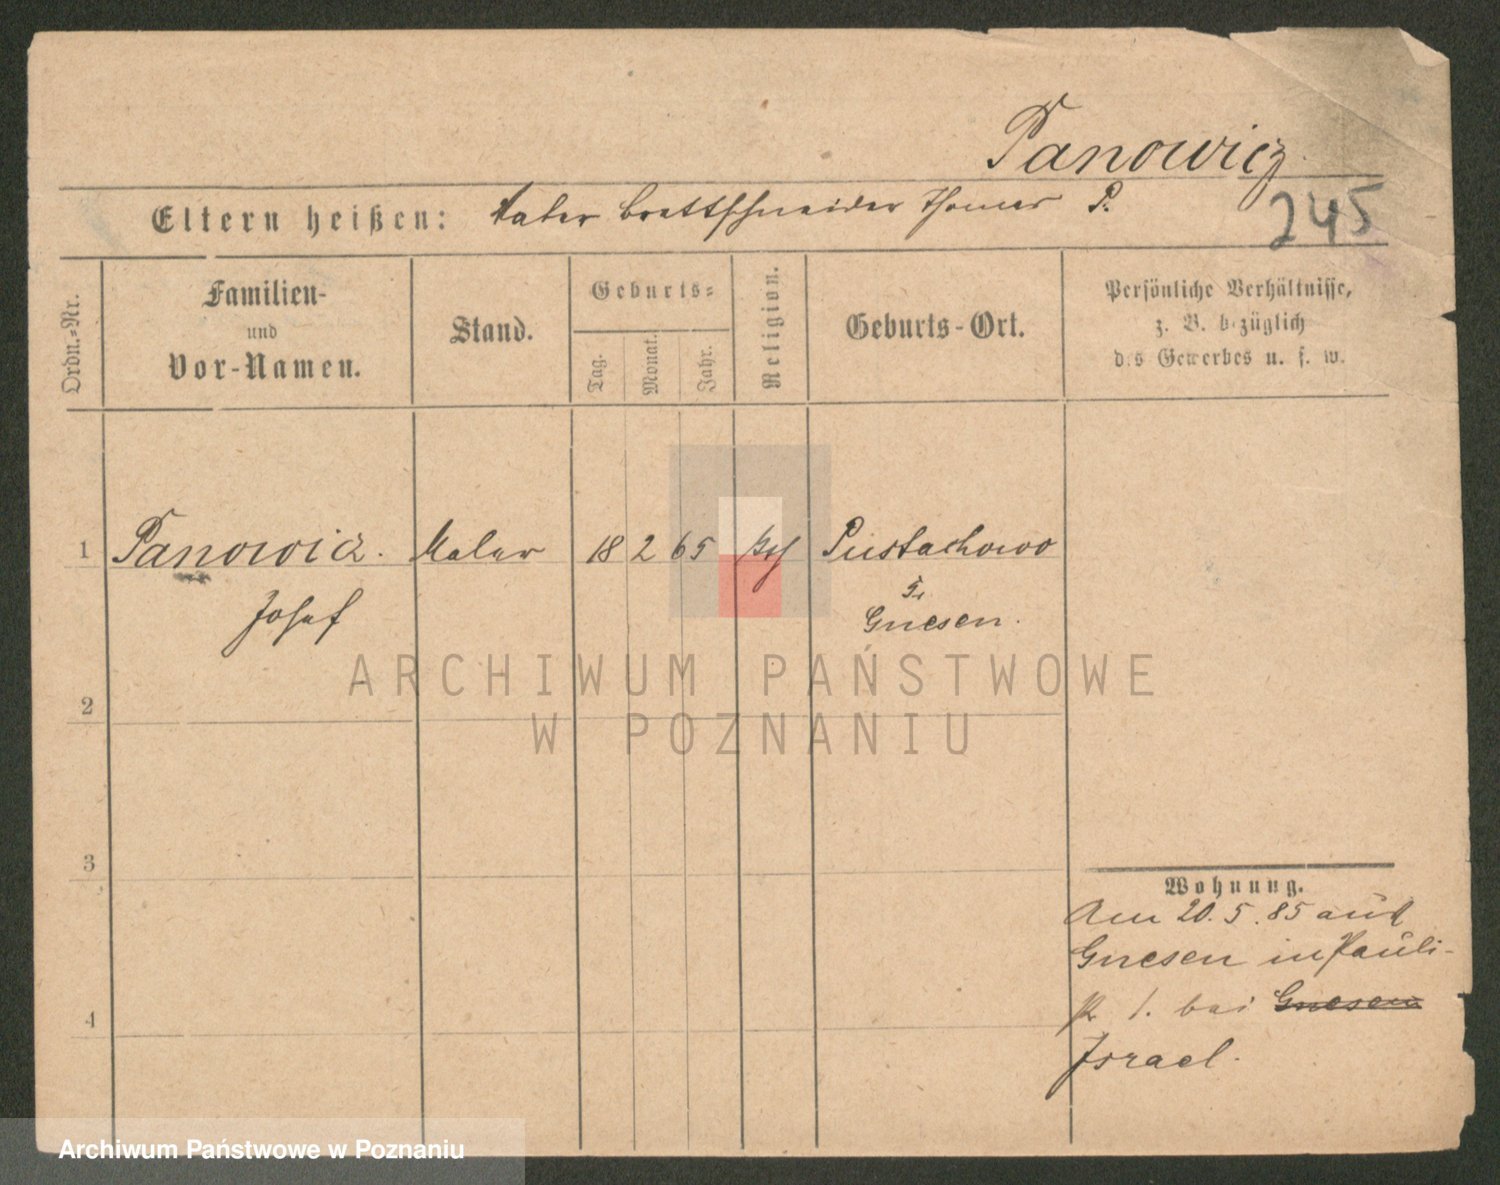 Panowicz
245
Eltern heißen: Vater Brettschneider Thomas P.
Ordn.-Nr.
Familien-
und
Vor-Namen.
Stand.
Geburts-
Tag.
Monat.
Jahr.
Religion.
Geburts-Ort.
Persönliche Verhältnisse,
z. B. bezüglich
des Gewerbes u. s. w.
1 Panowicz. Maler 18 2 65 Pustachowo
Josef
Gnesen.
2
3
4
Wohnung.
Am 20.5.85 aus
Gnesen in Pauli-
1. bei Gnesen
Israel.
ARCHIWUM PAŃSTWOWE
W POZNANIU
Archiwum Państwowe w Poznaniu